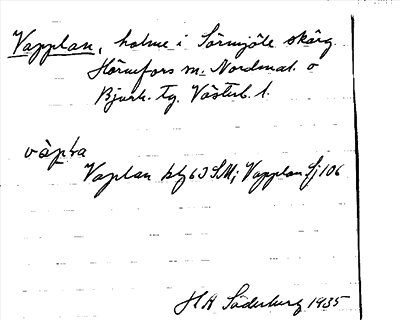 Vapplan, holme i Sörmjöle skärg.
Hörnefors sn. Nordmal. o
Bjurh. tg. Västerb. l.
våpḷa
Vaplan blz 63 SM; Vapplan Sj 106
H A Söderberg 1935